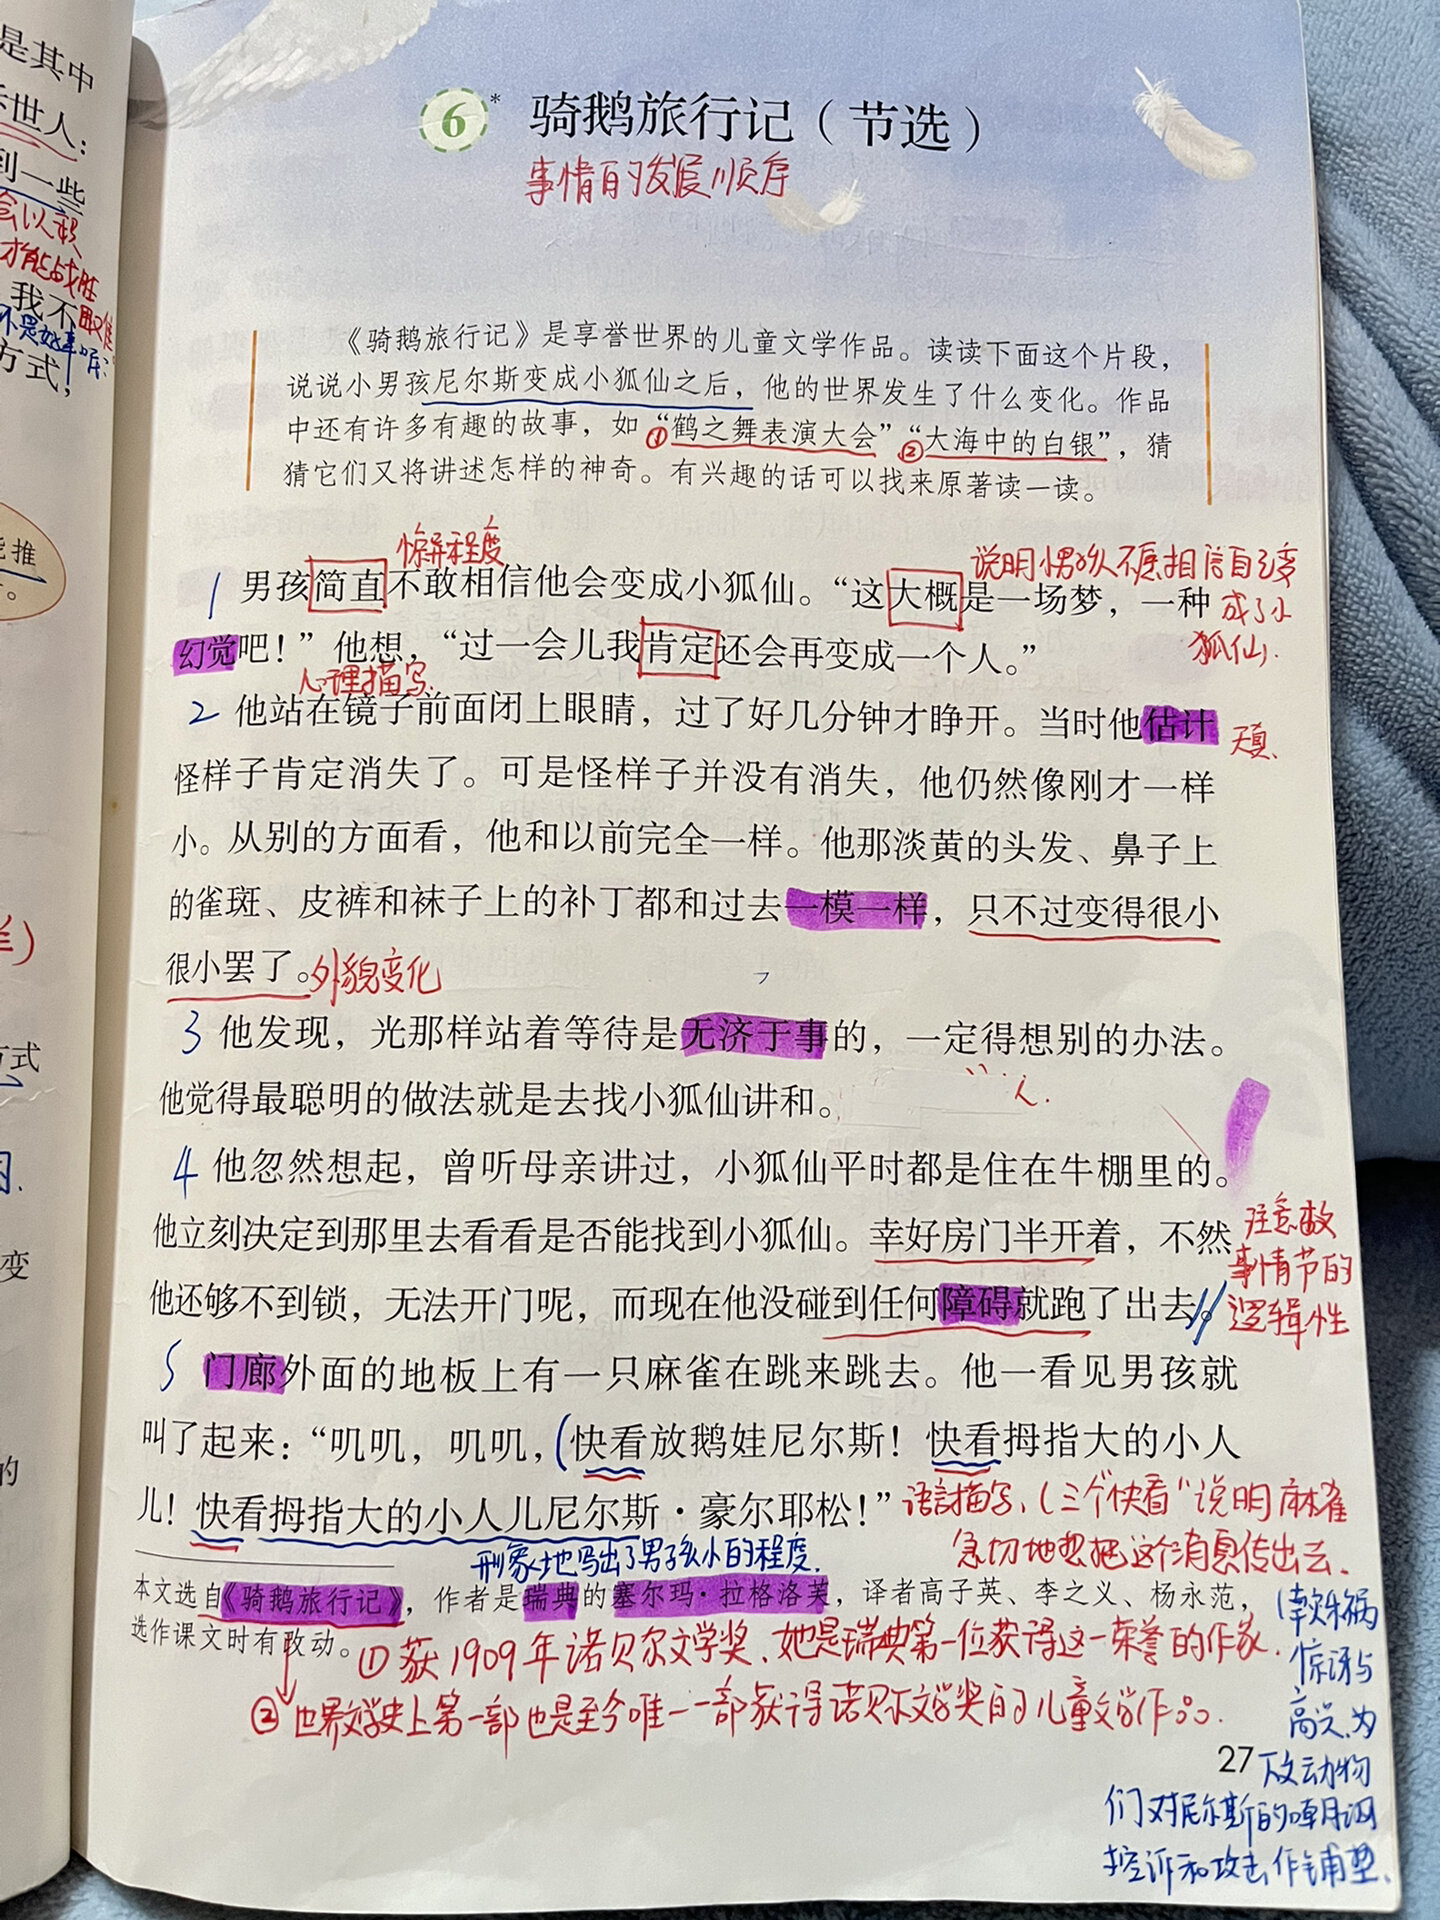 是其中
世人：
到一些
会以积
才能战胜
我不取
不是好事
方式，
推
变
的
6* 骑鹅旅行记（节选）
事情的发展顺序
《骑鹅旅行记》是享誉世界的儿童文学作品。读读下面这个片段，
说说小男孩尼尔斯变成小狐仙之后，他的世界发生了什么变化。作品
中还有许多有趣的故事，如①“鹤之舞表演大会”②“大海中的白银”，猜
猜它们又将讲述怎样的神奇。有兴趣的话可以找来原著读一读。
惊异程度
说明小男孩不愿相信自己变
1 男孩简直不敢相信他会变成小狐仙。“这大概是一场梦，一种
成了小
幻觉吧！”他想，“过一会儿我肯定还会再变成一个人。”
狐仙.
心理描写.
2 他站在镜子前面闭上眼睛，过了好几分钟才睁开。当时他估计
天真.
怪样子肯定消失了。可是怪样子并没有消失，他仍然像刚才一样
小。从别的方面看，他和以前完全一样。他那淡黄的头发、鼻子上
的雀斑、皮裤和袜子上的补丁都和过去一模一样，只不过变得很小
很小罢了。外貌变化
3 他发现，光那样站着等待是无济于事的，一定得想别的办法。
他觉得最聪明的做法就是去找小狐仙讲和。
4 他忽然想起，曾听母亲讲过，小狐仙平时都是住在牛棚里的。
他立刻决定到那里去看看是否能找到小狐仙。幸好房门半开着，不然
注意故
事情节的
他还够不到锁，无法开门呢，而现在他没碰到任何障碍就跑了出去。
逻辑性
5 门廊外面的地板上有一只麻雀在跳来跳去。他一看见男孩就
叫了起来：“叽叽，叽叽，快看放鹅娃尼尔斯！快看拇指大的小人
儿！快看拇指大的小人儿尼尔斯·豪尔耶松！”
语言描写、(三个“快看”说明麻雀
急切地想把这个消息传出去.
形象地写出了男孩小的程度.
本文选自《骑鹅旅行记》，作者是瑞典的塞尔玛·拉格洛芙，译者高子英、李之义、杨永范，
选作课文时有改动。
①获1909年诺贝尔文学奖、她是瑞典第一位获得这一荣誉的作家.
②世界文学史上第一部也是至今唯一一部获得诺贝尔文学奖的儿童文学作品.
幸灾乐祸
惊讶与
高兴.为
27
下文动物
们对尼尔斯的嘲讽
控诉和攻击作铺垫.